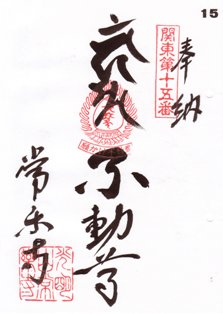 15
奉納
関東第十五番
不動尊
常楽寺